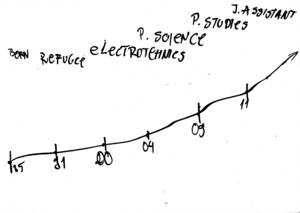 J. ASSISTANT
P. STUDIES
P. SCIENCE
ELECTROTEHNICS
REFUGEE
BORN
85 91 00 04 09 11